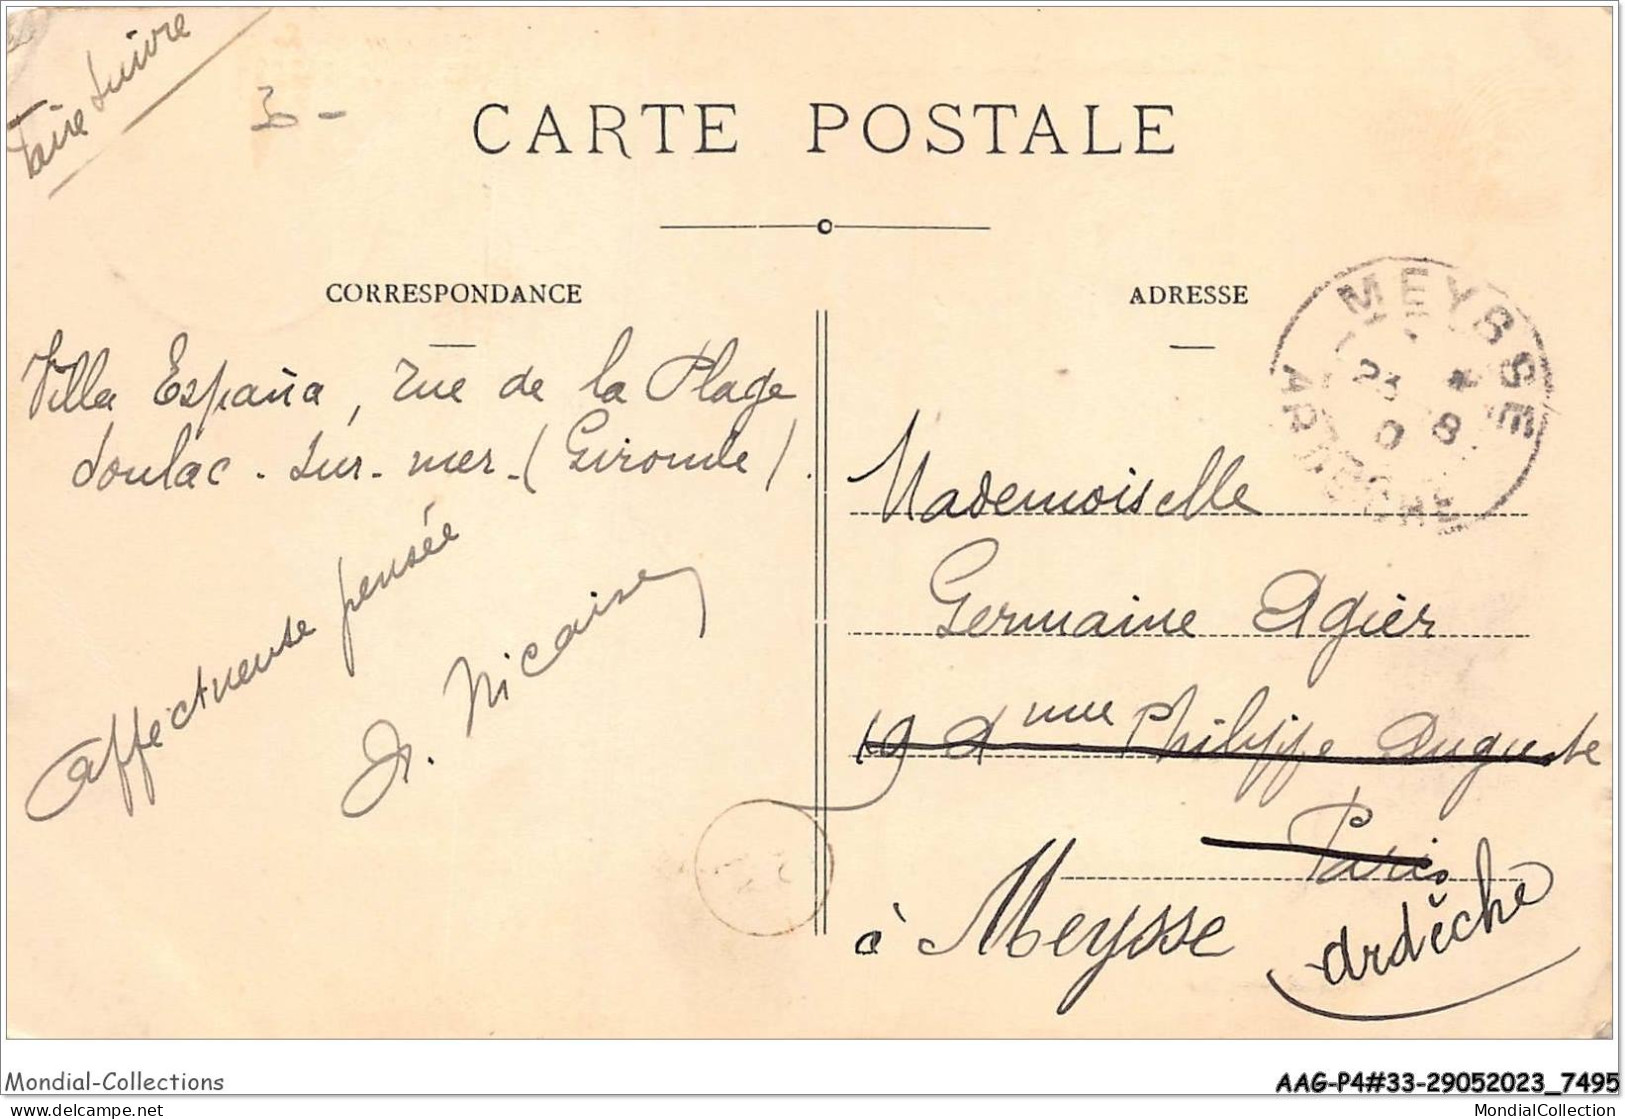 Faire suivre
CARTE POSTALE
CORRESPONDANCE
ADRESSE
MEYSSE
ARDECHE
Villa España, rue de la Plage
Soulac-sur-mer-(Gironde).
Affectueuse pensée
Nicaise
Mademoiselle
Germaine Agier
19 Aᵛᵉⁿᵘᵉ Philippe Auguste
Paris
à Meysse
Ardèche
Mondial-Collections
AAG-P4#33-29052023_7495
www.delcampe.net
MondialCollection